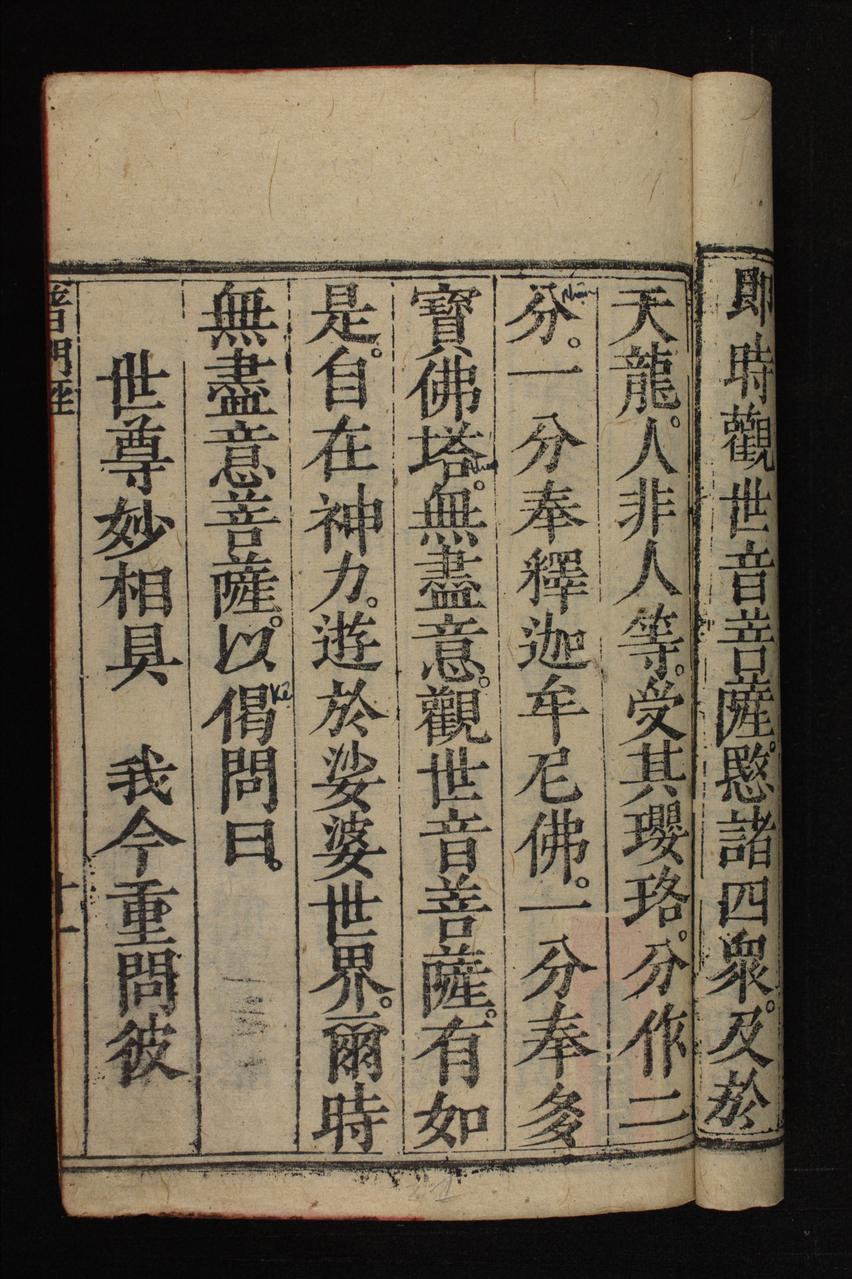 即時觀世音菩薩。愍諸四衆。及於
天龍。人非人等。受其瓔珞。分作二
分。一分奉釋迦牟尼佛。一分奉多
寶佛塔。無盡意。觀世音菩薩。有如
是。自在神力。遊於娑婆世界。爾時
無盡意菩薩。以偈問曰。
世尊妙相具　我今重問彼
普門經
十一
kệ